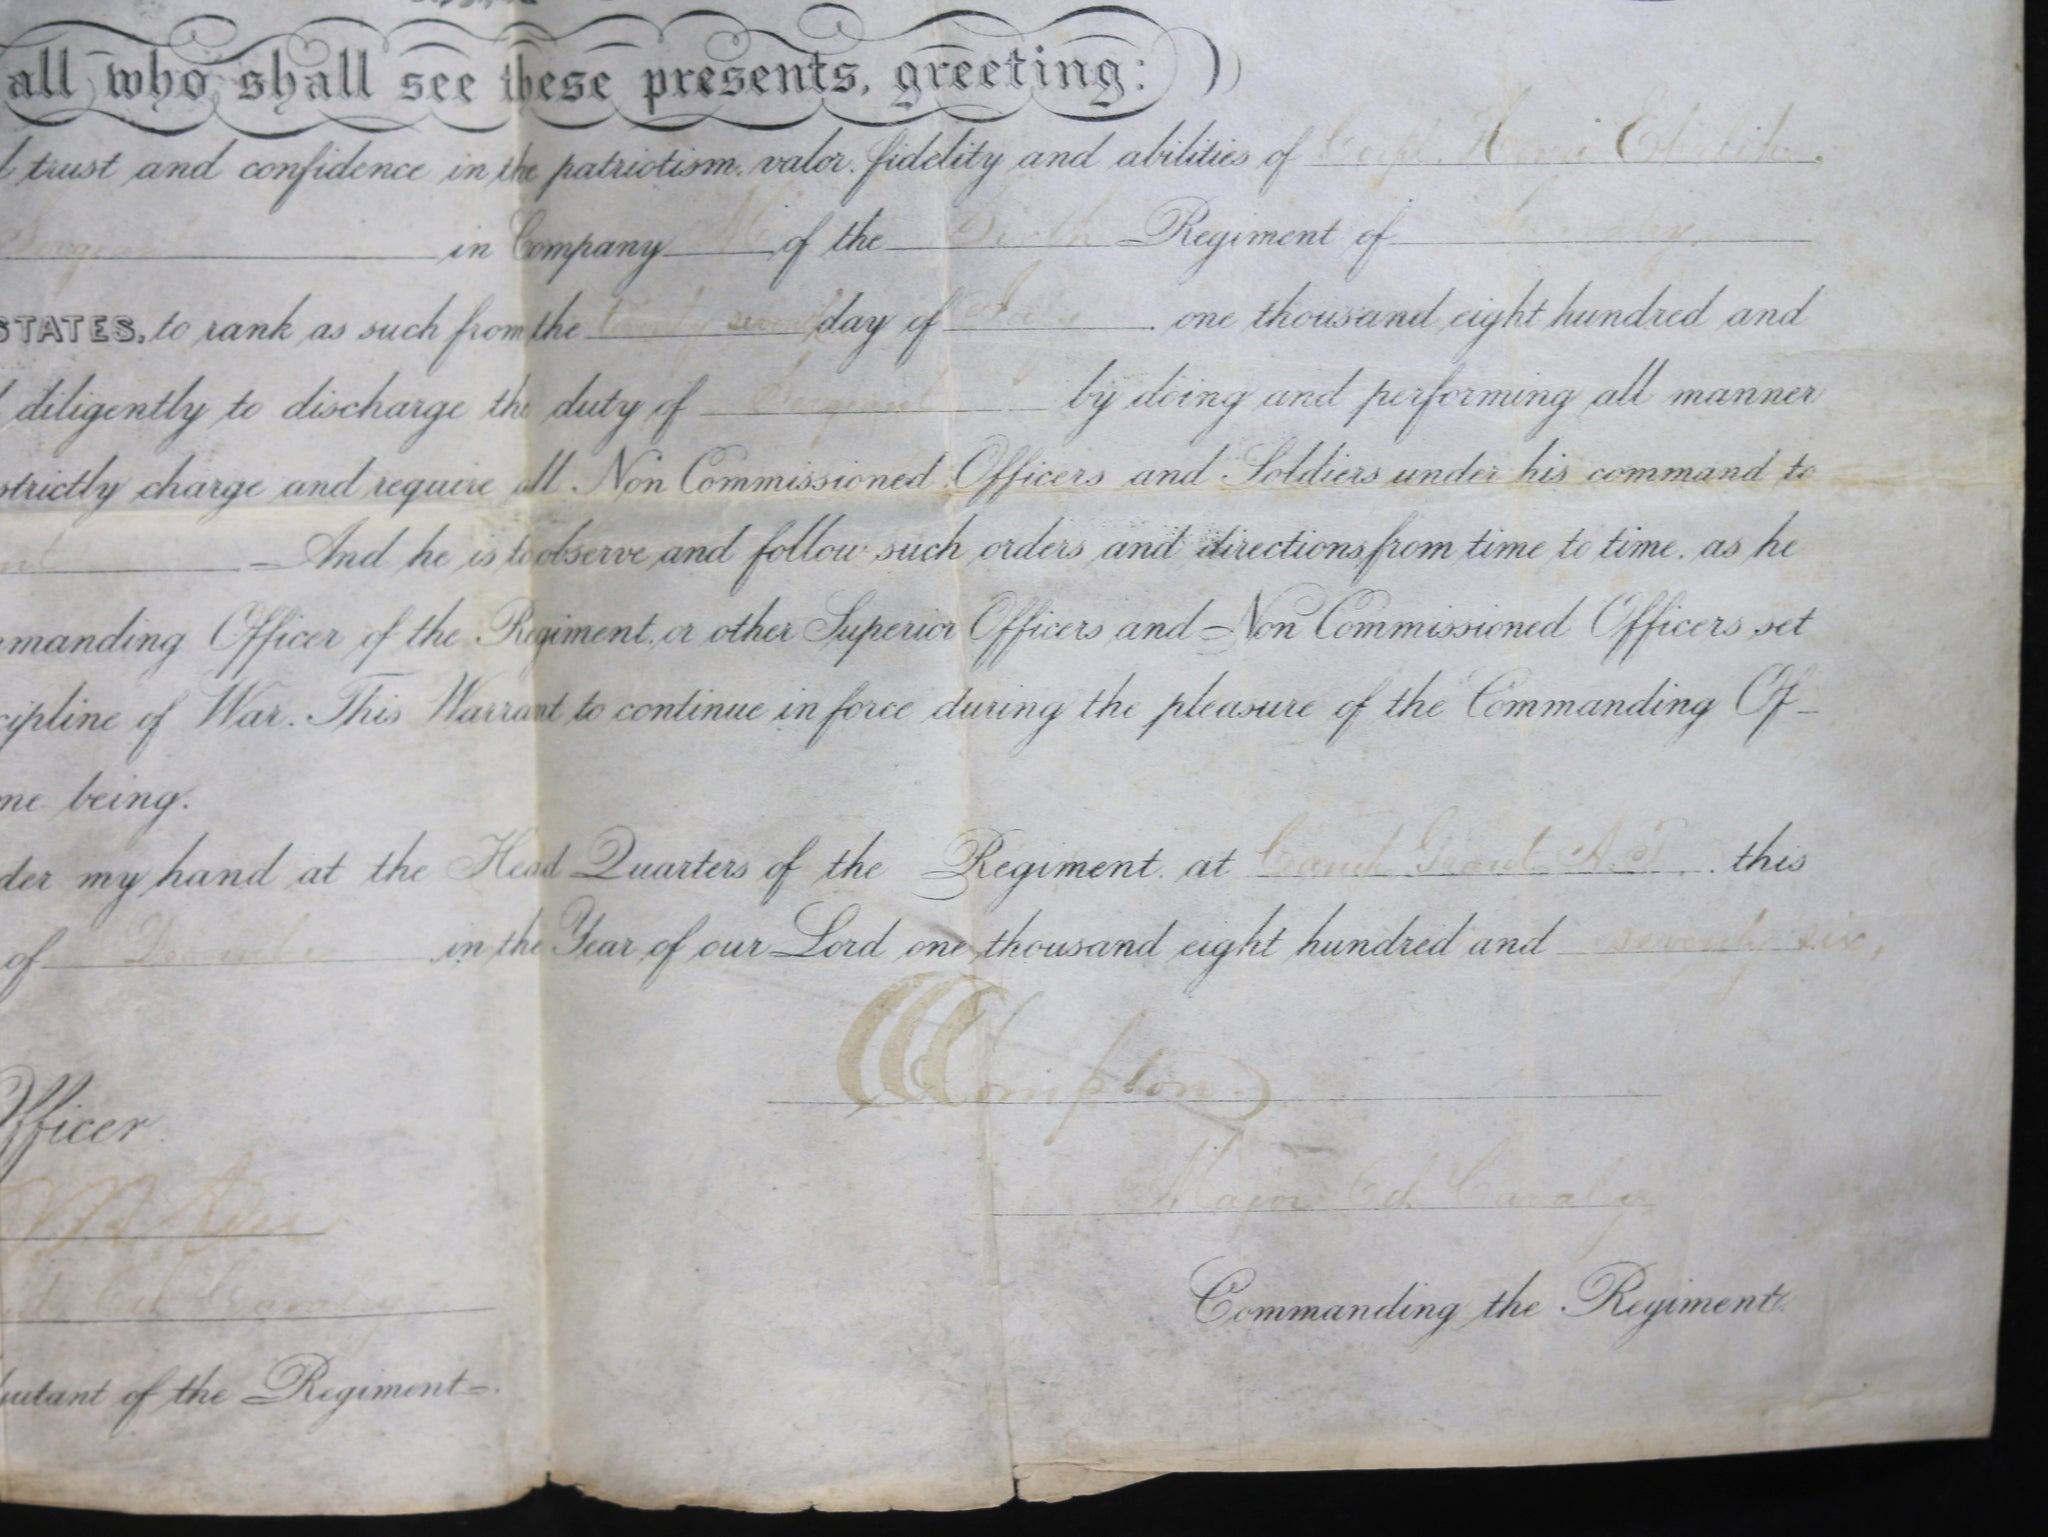 all who shall see these presents, greeting:
trust and confidence in the patriotism, valor, fidelity and abilities of Corp.
in Company M of the Sixth Regiment of Cavalry,
STATES, to rank as such from the twenty seventh day of July one thousand eight hundred and
diligently to discharge the duty of Sergeant by doing and performing all manner
strictly charge and require all Non Commissioned Officers and Soldiers under his command to
And he is to observe and follow such orders and directions from time to time, as he
manding Officer of the Regiment, or other Superior Officers and Non Commissioned Officers set
cipline of War. This Warrant to continue in force during the pleasure of the Commanding Of-
me being.
der my hand at the Head Quarters of the Regiment. at Camp Grant A.T. this
of December in the Year of our Lord one thousand eight hundred and seventy six,
CCCompton
Officer
Major 6th Cavalry
6th Cavalry
Commanding the Regiment.
utant of the Regiment.